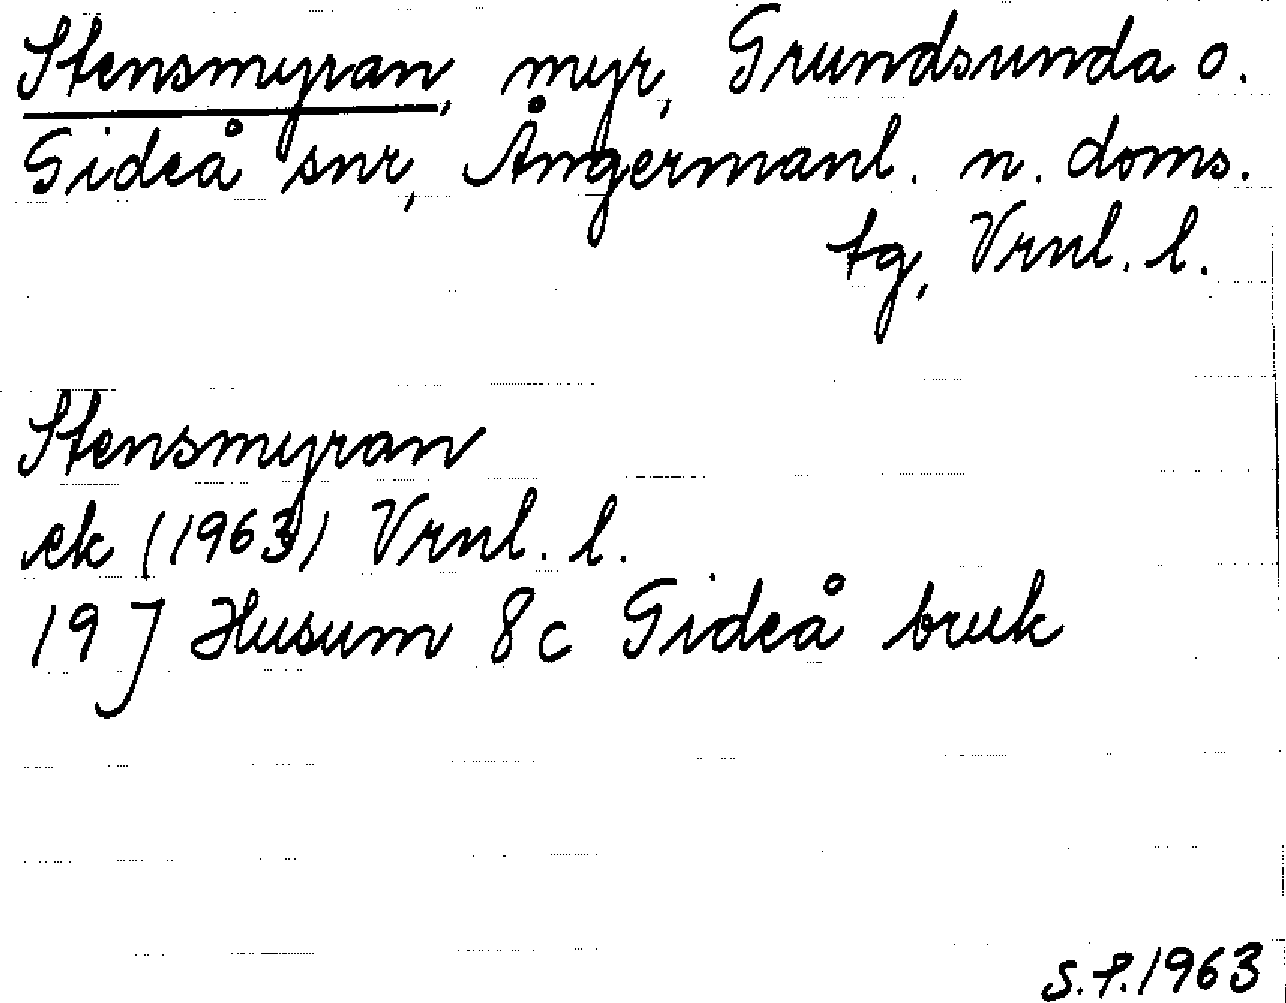 Stensmyran, myr, Grundsunda o.
Gideå snr, Ångermanl. n. doms.
tg, Vrnl. l.
Stensmyran
ek (1963) Vrnl. l.
19 J Husum 8c Gideå bruk
S.P. 1963